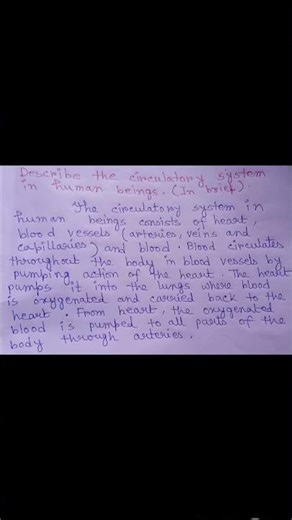 Describe the circulatory system
in human beings. (In brief)
The circulatory system in
human beings consists of heart,
blood vessels (arteries, veins and
capillaries) and blood. Blood circulates
throughout the body in blood vessels by
pumping action of the heart. The heart
pumps it into the lungs where blood
is oxygenated and carried back to the
heart. From heart, the oxygenated
blood is pumped to all parts of the
body through arteries.